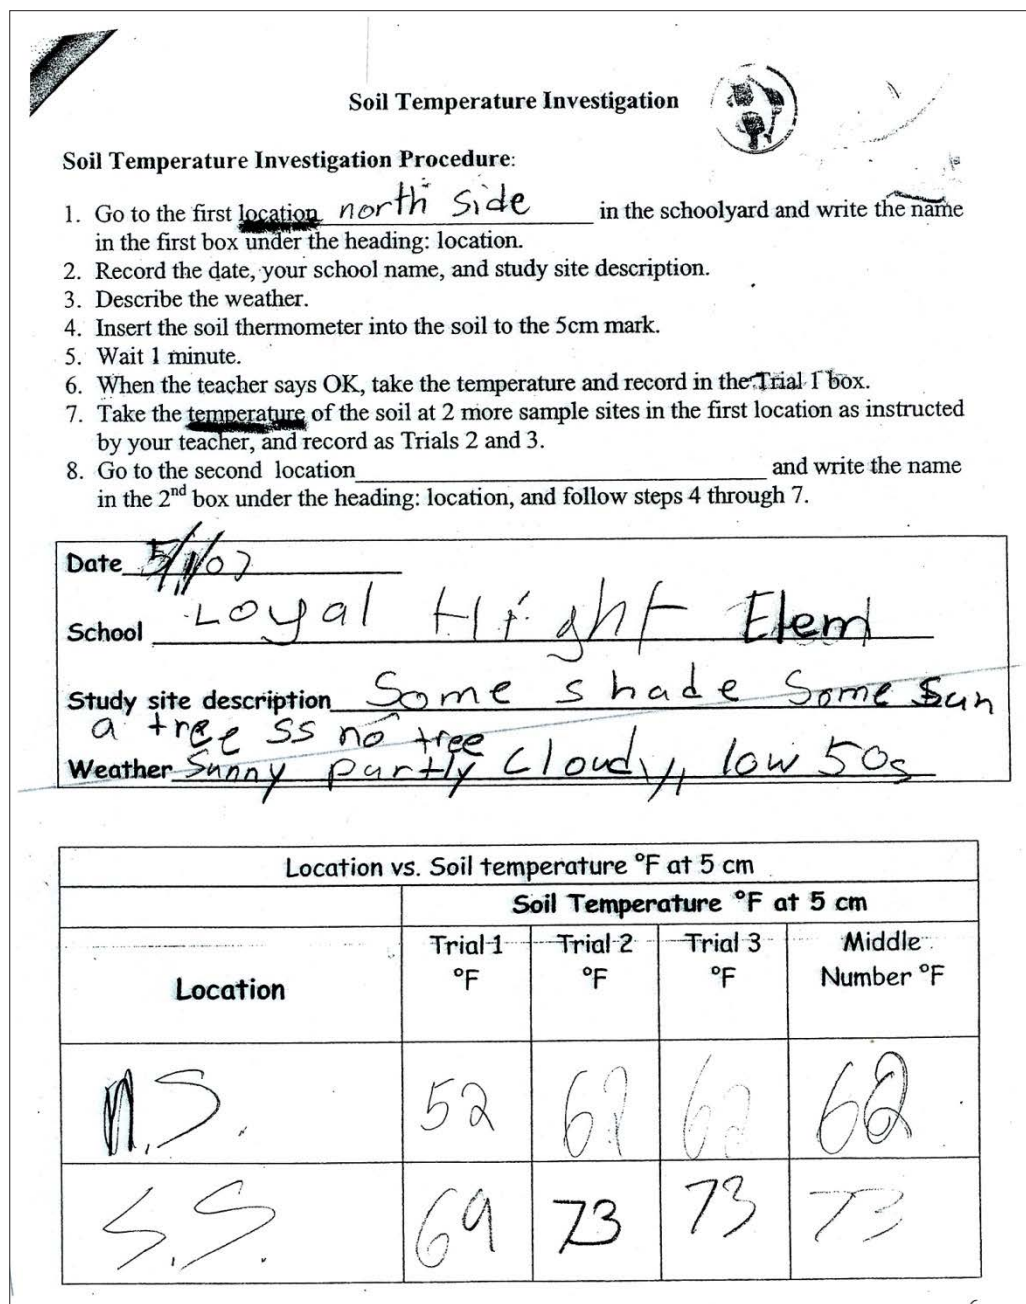 Soil Temperature Investigation
Soil Temperature Investigation Procedure:
1. Go to the first location north side in the schoolyard and write the name
in the first box under the heading: location.
2. Record the date, your school name, and study site description.
3. Describe the weather.
4. Insert the soil thermometer into the soil to the 5cm mark.
5. Wait 1 minute.
6. When the teacher says OK, take the temperature and record in the Trial 1 box.
7. Take the temperature of the soil at 2 more sample sites in the first location as instructed
by your teacher, and record as Trials 2 and 3.
8. Go to the second location and write the name
in the 2nd box under the heading: location, and follow steps 4 through 7.
Date 5/1/07
School Loyal Hight Elem
Study site description Some shade Some Sun
a tree SS no tree
Weather Sunny partly Cloudy, low 50s
Location vs. Soil temperature °F at 5 cm
Soil Temperature °F at 5 cm
Location Trial 1 °F Trial 2 °F Trial 3 °F Middle Number °F
n.S. 52 62 62 62
S.S. 69 73 73 73